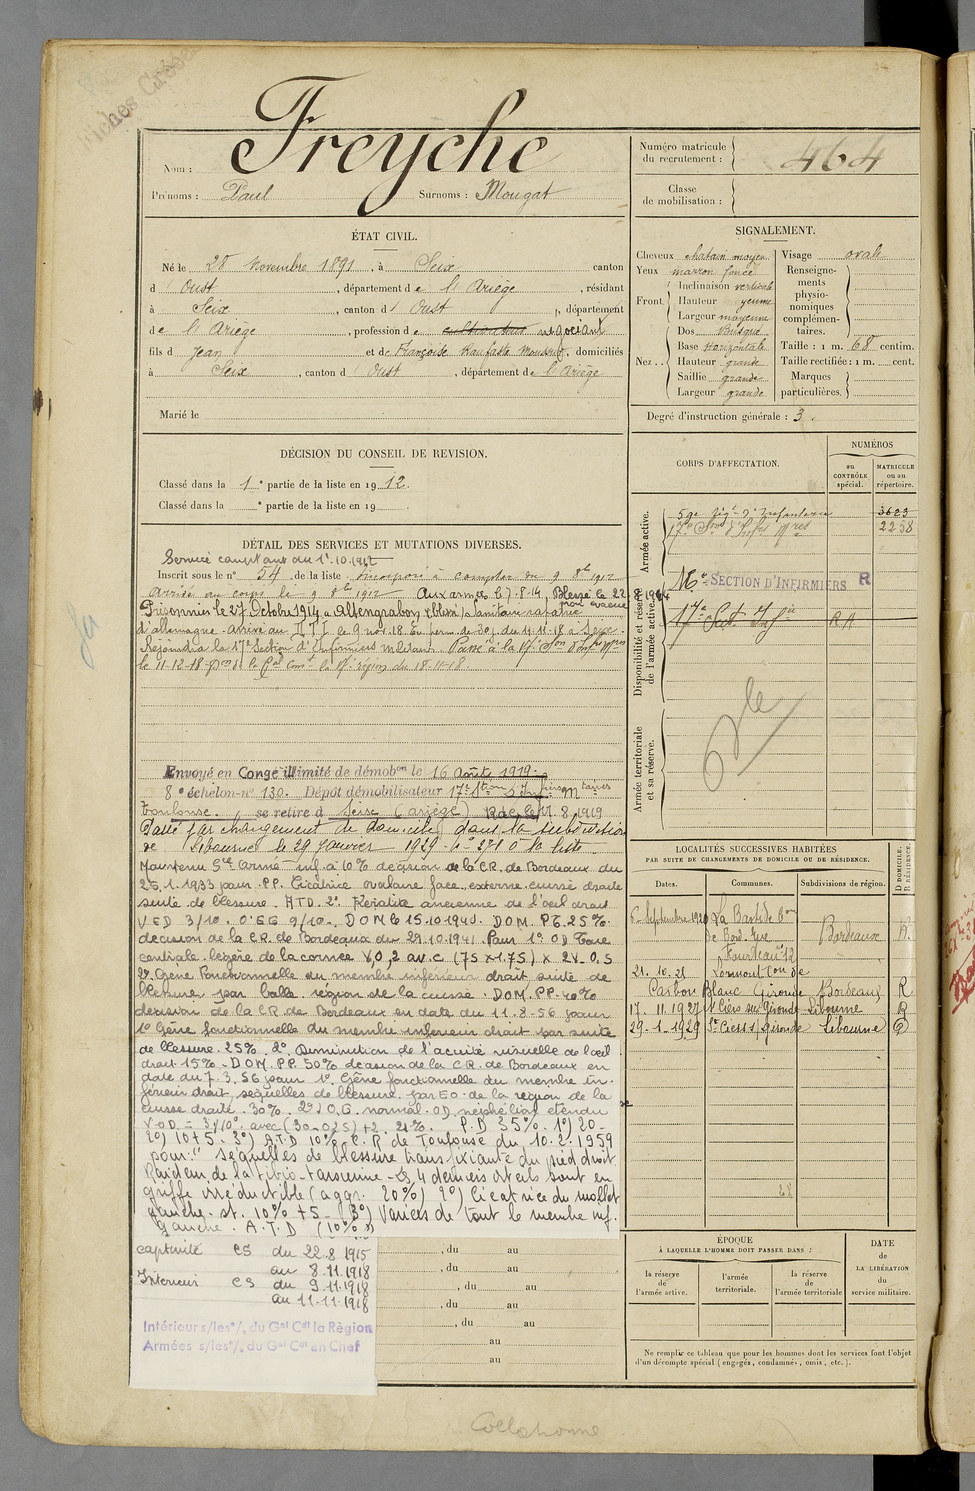 Fiches Croisées
Freyche
Nom :
Prénoms : Paul Surnoms : Mougat
Numéro matricule du recrutement : 464
Classe de mobilisation :
ÉTAT CIVIL.
Né le 28 Novembre 1891, à Seix canton
d'Oust, département de l'Ariège, résidant
à Seix, canton d'Oust, département
de l'Ariège, profession de négociant
fils d Jean et de Françoise, domiciliés
à Seix, canton d'Oust, département de l'Ariège
Marié le
SIGNALEMENT.
Cheveux chatain moyen
Yeux marron foncé
Front. Inclinaison verticale
Hauteur
Largeur moyenne
Nez. Dos Busqué
Base horizontale
Hauteur grande
Saillie grande
Largeur grande
Visage ovale
Renseignements physionomiques complémentaires.
Taille : 1 m. 68 centim.
Taille rectifiée : 1 m. cent.
Marques particulières.
Degré d'instruction générale : 3.
DÉCISION DU CONSEIL DE REVISION.
Classé dans la 1e partie de la liste en 1912.
Classé dans la e partie de la liste en 19
DÉTAIL DES SERVICES ET MUTATIONS DIVERSES.
Service comptant du 1er.10.1912
Inscrit sous le n° 54 de la liste. Incorporé à compter du 9 8bre 1912
Arrivé au corps le 9 8bre 1912 Aux armées le 7-8-14, Blessé le 22 8 1914 non évacué
Prisonnier le 27 Octobre 1914 à Altengrabow, sanitaire rapatrié
d'allemagne. arrivé au le 9 nov. 18. En perm. de 30 j. du 11.11.18 à Seix.
Rejoindra la 17e Section d'Infirmiers militaires. Passé à la 17e Son d'Infirs Mres
le 11-12-18
Envoyé en Congé illimité de démobon le 16 Août 1919.
8e échelon n° 130. Dépôt démobilisateur 17e Section d'Infirmiers Mtaires
Toulouse. se retire à Seix (Ariège)
Passé par changement de domicile dans la subdivision
de Libourne le 29 Janvier 1929 - n° 271 de la liste.
Maintenu Sce Armé inf. à 10% décision de la C.R. de Bordeaux du
25.1.1933 pour P.P. Cicatrice ovalaire face externe cuisse droite
suite de blessure. A.T.D. 2° Kératite ancienne de l'œil droit
V.ED 3/10. O'EG 9/10. DOM le 15.10.1940. DOM. P.T. 25%.
décision de la C.R. de Bordeaux du 29.10.1941 Pour 1° OD Taie
centrale légère de la cornée V0,2 av.c (75 x 1.75) x 2V = 0.5
2° Gêne fonctionnelle du membre inférieur droit suite de
blessure par balle région de la cuisse. DOM. P.P. 40%
décision de la C.R. de Bordeaux en date du 11.8-56 pour
1° Gêne fonctionnelle du membre inférieur droit par suite
de blessure. 25%. 2° Diminution de l'acuité visuelle de l'œil
droit 15% - DOM. P.P. 50% décision de la C.R. de Bordeaux en
date du 7.3.56 pour 1° Gêne fonctionnelle du membre in-
férieur droit, séquelles de blessure par E.O. de la région de la
cuisse droite. 30%. 2°) O.G. normal. OD néphélion étendu
V.OD = 3/10° avec (30-0,25) +2. 21%. P.D 35%. 1°) 20-
2°) 10+5. 3°) A.T.D 10%. C.R de Toulouse du 10.2.1959
pour : Séquelles de blessure transfixiante du pied droit
Raideur de la tibio-tarsienne - Les 4 derniers orteils sont en
griffe irréductible (aggr. 20%) 2°) Cicatrice du mollet
gauche. st. 10% +5 - (3°) Varices de tout le membre inf.
gauche. A.T.D (10%)
captivité CS du 22.8.1915
au 8.11.1918
Intérieur CS du 9.11.1918
au 11-11-1918
Intérieur s/les°/, du Gal Cdt la Règion
Armées s/les°/, du Gal Cdt en Chef
, du au
, du au
, du au
, du au
, du au
au
au
CORPS D'AFFECTATION.
NUMÉROS
au CONTRÔLE spécial.
MATRICULE ou au répertoire.
Armée active.
59e Régt d'Infanterie 3623
17e Son d'Infirs Mres 2258
Disponibilité et réserve de l'armée active.
17e SECTION D'INFIRMIERS R
17e Sect. Infre RA
Armée territoriale et sa réserve.
LOCALITÉS SUCCESSIVES HABITÉES
PAR SUITE DE CHANGEMENTS DE DOMICILE OU DE RÉSIDENCE.
Dates. Communes. Subdivisions de région. D DOMICILE. R RÉSIDENCE.
6 Septembre 1920 La Bastide Bordeaux R.
21.10.21 Lormont Con de
Carbon Blanc Gironde Bordeaux R
17.11.1927 St Ciers sur Gironde Libourne R
29-1-1929 St Ciers s/ Gironde Libourne D
ÉPOQUE
À LAQUELLE L'HOMME DOIT PASSER DANS :
la réserve de l'armée active.
l'armée territoriale.
la réserve de l'armée territoriale
DATE de LA LIBÉRATION du service militaire.
Ne remplir ce tableau que pour les hommes dont les services font l'objet
d'un décompte spécial (engagés, condamnés, omis, etc.).
Collationné